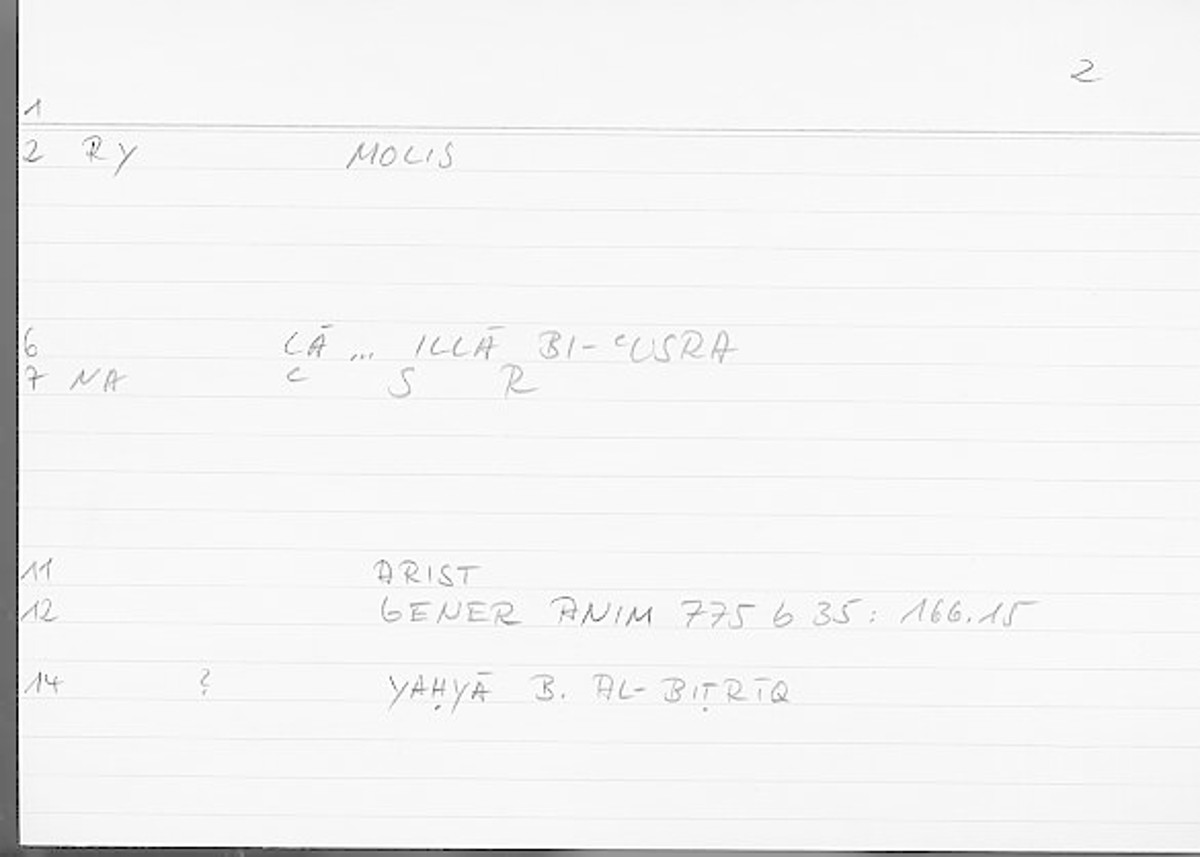 2
1
2 RY MOLIS
6 LĀ ... ILLĀ BI-ʿUSRA
7 NA ʿ S R
11 ARIST
12 GENER ANIM 775 b 35: 166.15
14 ? YAḤYĀ B. AL-BIṬRĪQ